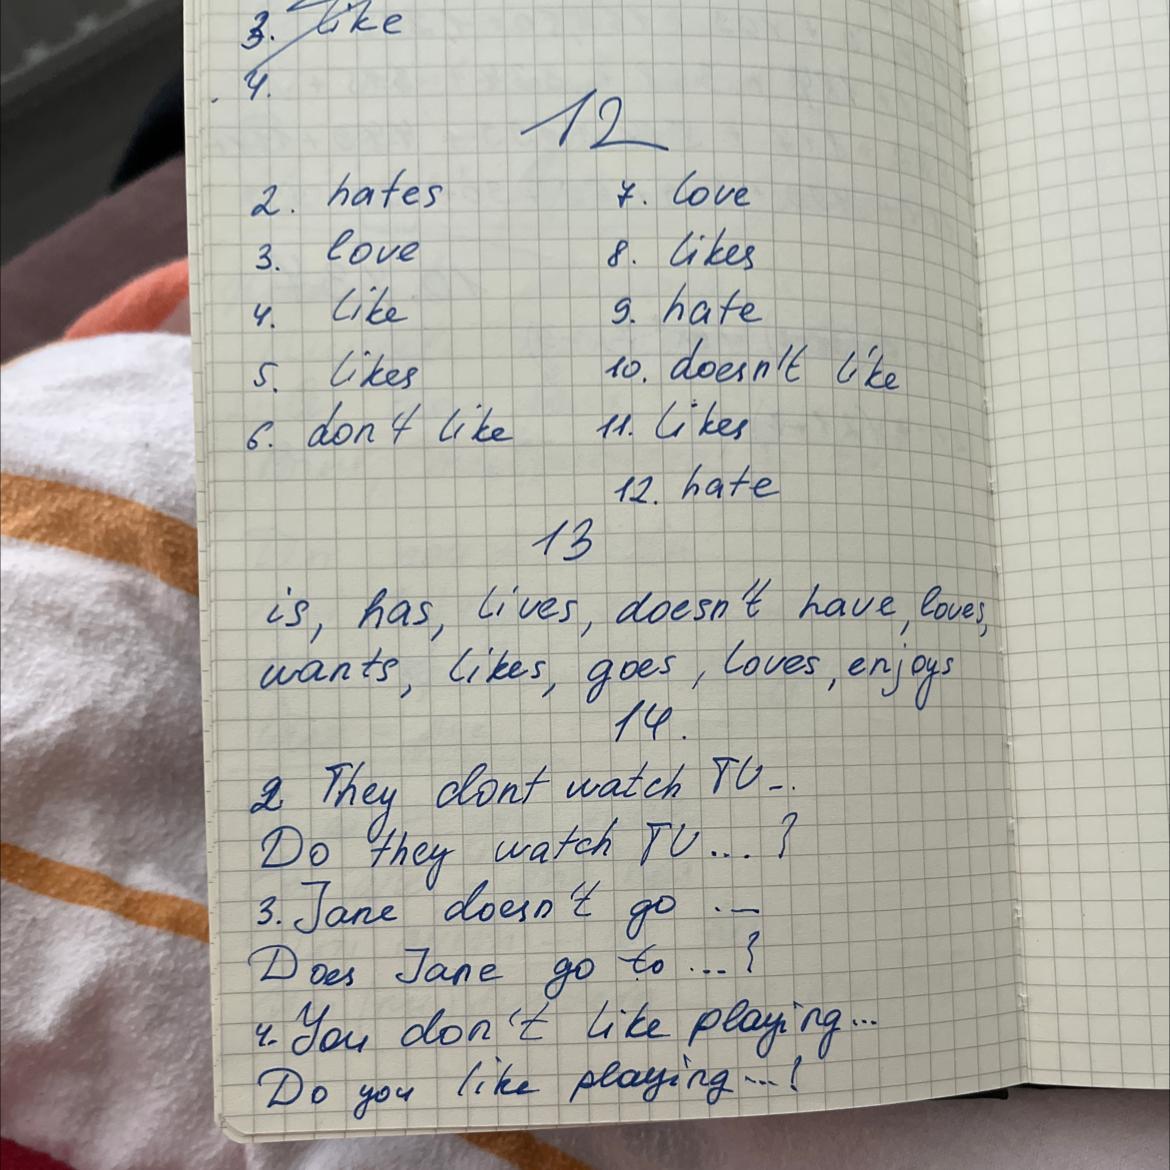 3. like
4.
12
2. hates 7. love
3. love 8. likes
4. like 9. hate
5. likes 10. doesn't like
6. don't like 11. likes
12. hate
13
is, has, lives, doesn't have, loves,
wants, likes, goes, loves, enjoys
14.
2 They dont watch TV...
Do they watch TV...?
3. Jane doesn't go ...
Does Jane go to ...?
4. You don't like playing...
Do you like playing...?